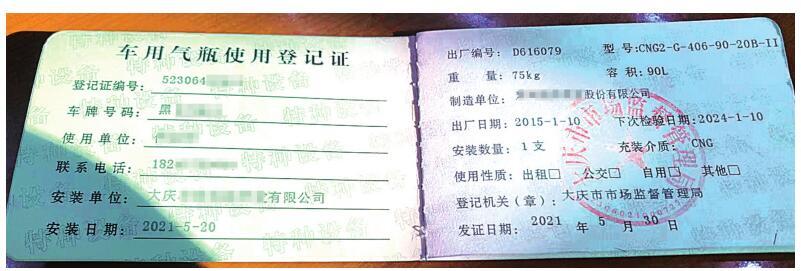 车用气瓶使用登记证
登记证编号: 523064
车牌号码: 黑
使用单位:
联系电话: 182
安装单位: 大庆 有限公司
安装日期: 2021-5-20
出厂编号: D616079 型号:CNG2-G-406-90-20B-II
重量: 75kg 容积:90L
制造单位: 股份有限公司
出厂日期:2015-1-10 下次检验日期:2024-1-10
安装数量: 1支 充装介质: CNG
使用性质: 出租□ 公交□ 自用□ 其他□
登记机关(章): 大庆市市场监督管理局
发证日期: 2021 年 5 月 30 日
大庆市市场监督管理局
特种设备